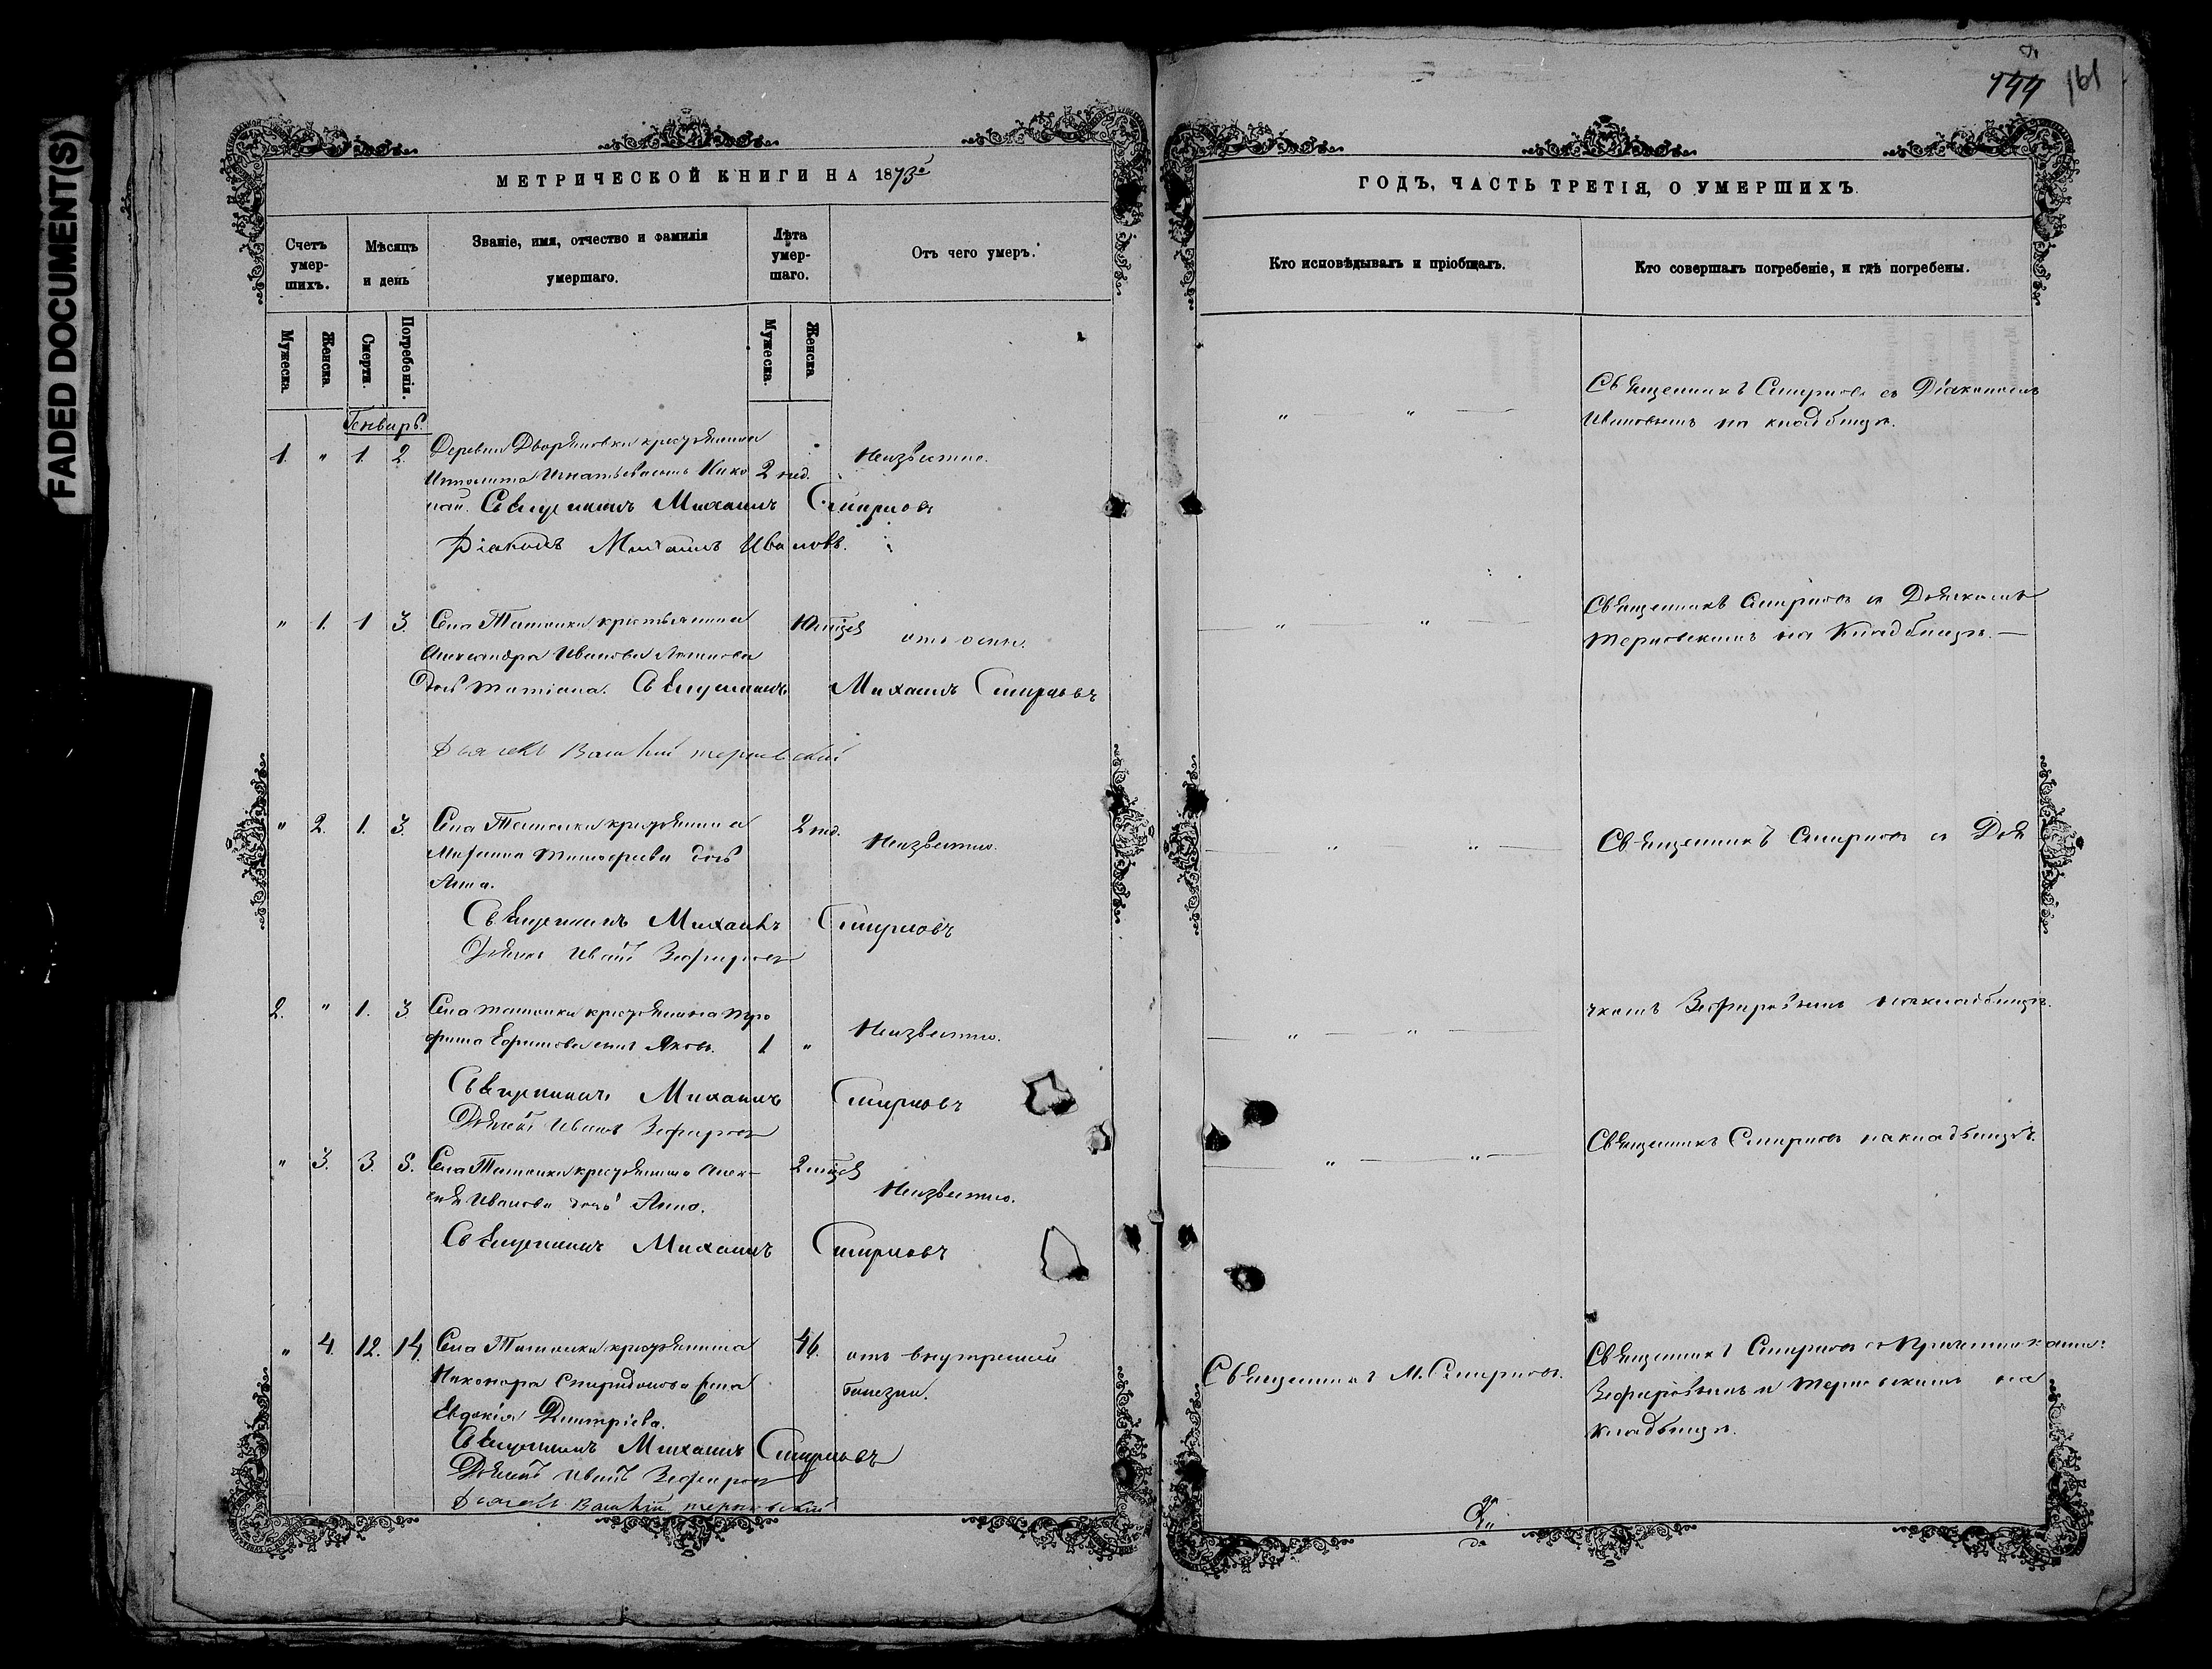 FADED DOCUMENT(S)
МЕТРИЧЕСКОЙ КНИГИ НА 1873й
Счетъ умер-
шихъ.
Мѣсяцъ
и день
Званіе, имя, отчество и фамилія
умершаго.
Лѣта
умер-
шаго.
Отъ чего умеръ.
Мужеска.
Женска.
Смерти.
Погребенія.
Мужеска.
Женска
Генварь.
1. " 1. 2. Деревни Дворяновки крестьянина
Ипполита Игнатьева сынъ Нико 2 нед. Неизвѣстно.
лай. Священникъ Михаилъ Смирновъ
Діаконъ Михаилъ Ивановъ.
" 1. 1 3. Села Ташолки крестьянина 10 мѣсц отъ оспы.
Александра Иванова
дочь Татіана. Священникъ Михаилъ Смирновъ
Дьячекъ Василій Терновскій
" 2. 1. 3. Села Ташолки крестьянина 2 нед. Неизвѣстно.
Тимофеева дочь
Анна.
Священникъ Михаилъ Смирновъ
Дьячекъ Иванъ Зефировъ
2. " 1. 3. Села Ташолки крестьянина Тро
фима Ефимова сынъ Яковъ. 1. " Неизвѣстно.
Священникъ Михаилъ Смирновъ
Дьячекъ Иванъ Зефировъ
" 3. 3. 5. Села Ташолки крестьянина Алек- 2 мѣсц
сѣя Иванова дочь Анна. Неизвѣстно.
Священникъ Михаилъ Смирновъ
" 4. 12. 14. Села Ташолки крестьянина 46. отъ внутренней
Никонора Спиридонова жена болезни.
Евдокія Димитріева.
Священникъ Михаилъ Смирновъ
Дьячекъ Иванъ Зефировъ
Дьячекъ Василій Терновскій
144 161
ГОДЪ, ЧАСТЬ ТРЕТІЯ, О УМЕРШИХЪ.
Кто исповѣдывалъ и пріобщалъ.
Кто совершалъ погребеніе, и гдѣ погребены.
" " Священникъ Смирновъ съ Діакономъ
Ивановымъ на кладбищѣ.
" " Священникъ Смирновъ съ Дьячкомъ
Терновскимъ на Кладбищѣ.—
" " Священникъ Смирновъ съ Дья
" " чкомъ Зефировымъ на кладбищѣ.
" " Священникъ Смирновъ на кладбищѣ.
Священникъ М. Смирновъ. Священникъ Смирновъ съ Причетниками:
Зефировымъ и Терновскимъ на
кладбищѣ.